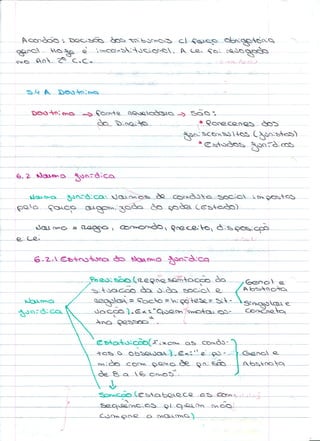 Acordão: Decisão dos tribunais c/ força obrigatória
geral. Hoje é inconstitucional. A Lei foi revogada
no Art. 2º C.C.
5.4 A Doutrina
Doutrina → Fonte reveladora → São:
do Direito
* Pareceres dos
jurisconsultos (juristas)
* Estudos jurídicos
6.2 Norma Jurídica
Norma Jurídica: Normas de conduta social impostas
pela força organizada do poder (Estado)
Norma = Regra, comando, preceito, disposição
e Lei.
6.2.1 Estrutura da Norma Jurídica
Norma
Jurídica
Previsão (Representação da
situação da vida social e
regular = Facto = hipótese = Sit-
uação). Ex: "Quem matar ou-
tra pessoa".
Geral e
Abstracta
Singular e
Concreta
Estatuição (Fixam as condu-
tas a observar). Ex: "é pu-
nido com pena de prisão
de 8 a 16 anos".
Geral e
Abstracta
Sanção (Estabelece as
sequências p/ quem não
cumprir a norma)